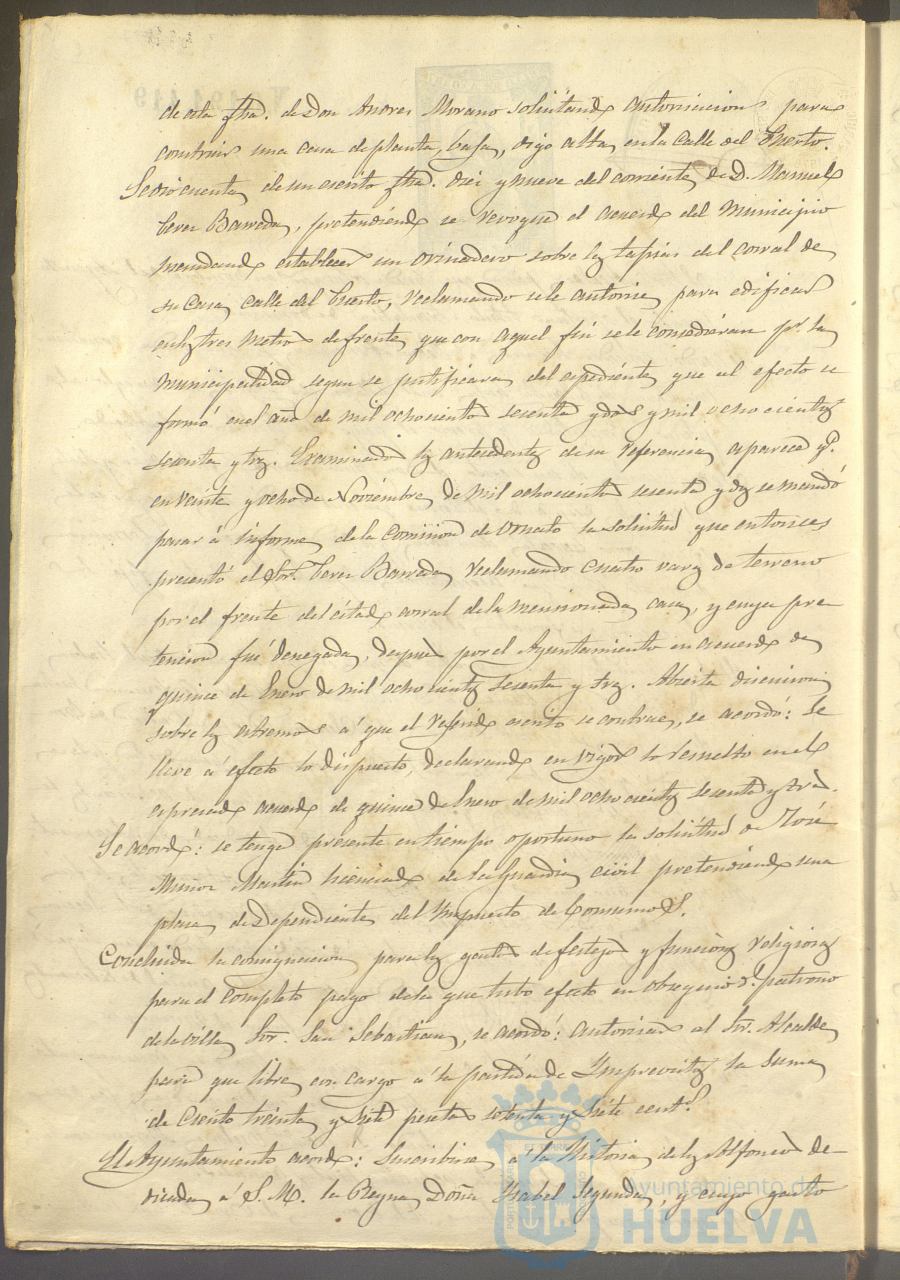 de esta fha. de Don Andres Morano solicitando autorizacion para
construir una casa de planta baja, digo alta en la Calle del Puerto.
Se dio cuenta de un escrito fha. diez y nueve del corriente de D. Manuel
Perez Barreda, pretendiendo se revoque el acuerdo del Municipio
mandando establecer un orinadero sobre las tapias del corral de
su Casa calle del Puerto, reclamando se le autorice para edificar
en los tres metros de frente que con aquel fin se le concedieran pr. la
municipalidad segun se justificara del espediente que al efecto se
formó en el año de mil ochocientos sesenta y dos y mil ochocientos
sesenta y tres. Examinados los antecedentes de su referencia aparece q.
en veinte y ocho de Noviembre de mil ochocientos sesenta y dos se mandó
pasar á informe de la Comision de Ornato la solicitud que entonces
presentó el Sor. Perez Barreda reclamando cuatro varas de terreno
por el frente del citado corral de la mencionada casa, y cuya pre
tencion fué denegada, despues por el Ayuntamiento en acuerdo de
quince de Enero de mil ochocientos sesenta y tres. Abierta discusion
sobre los estremos á que el referido escrito se contrae, se acordó: Se
lleve á efecto lo dispuesto, declarando en vigor lo resuelto en el
espresado acuerdo de quince de Enero de mil ochocientos sesenta y tres.
Se acordó: se tenga presente en tiempo oportuno la solicitud de José
Muñoz Martin licenciado de la Guardia civil pretendiendo una
plaza de Dependiente del Ympuesto de Consumos.
Concluida la consignacion para los gastos de festejos y funciones religiosas
para el completo pago de la que tubo efecto en obsequio dl. patrono
de la villa Sor. San Sebastian, se acordó: autorizar al Sr. Alcalde
para que libre con cargo á la partida de Ymprevistos la suma
de ciento treinta y siete pesetas setenta y siete cents.
El Ayuntamiento acordó: Suscribirse á la Historia de los Alfonsos de-
dicada á S. M. la Reyna Doña Ysabel Segunda, y cuyo gasto
Ayuntamiento de
HUELVA